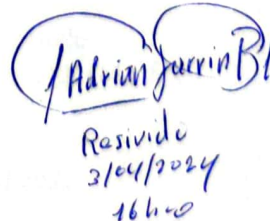 Adrian Jarrin B
Resivido
3/04/2024
16h00